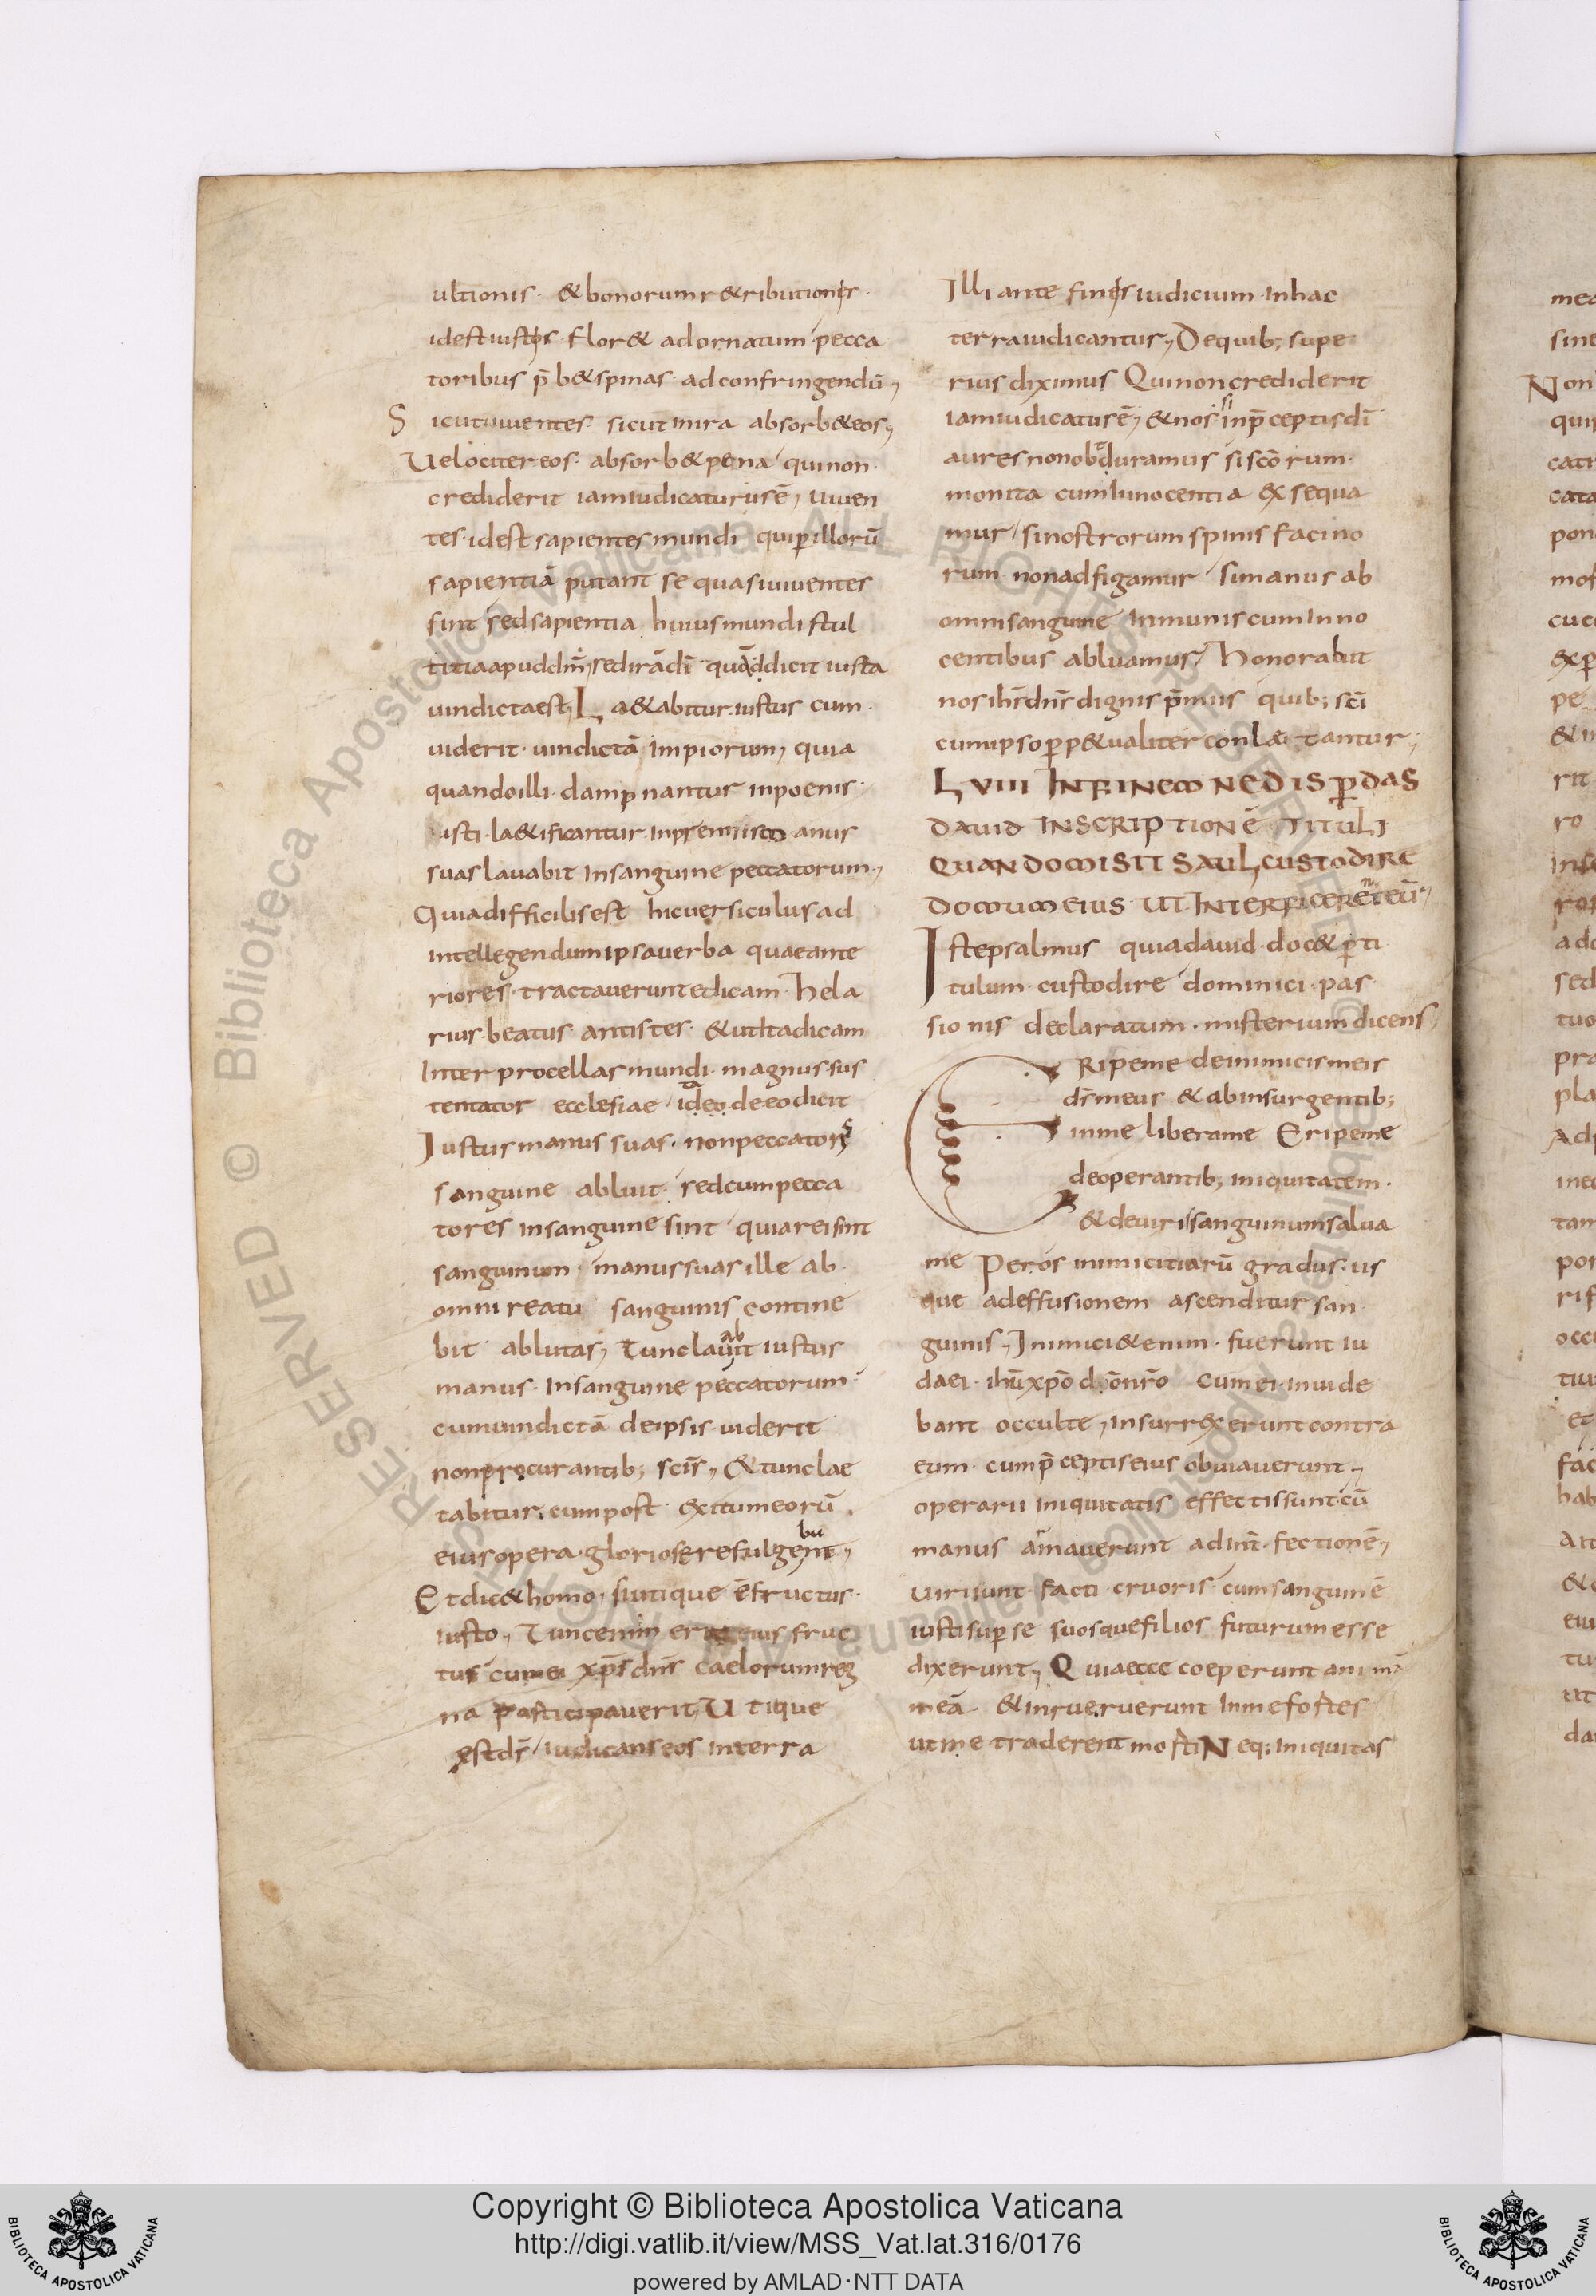 ultionis · & bonorum r&ributionis ·
idest iustis flor& ad ornatum pecca
toribus p̄b& spinas ad confringendū,
Sicut uiuentes sicut in ira absorb& eos,
Uelociter eos · absorb& pena qui non
crediderit iam iudicaturus ē, uiuen
tes · idest sapientes mundi qui p illorū
sapientiā putant se quasi uiuentes
sint sed sapientia huius mundi stul
titia apud dm̄, sed irā dī dicit iusta
uindicta est, La&abitur iustus cum
uiderit · uindictā impiorum, quia
quando illi · dampnantur in poenis ·
iusti · la&ificantur in manus
suas lauabit in sanguine peccatorum,
Quia difficilis est hic uersiculus ad
intellegendum ipsa uerba quae ante
riores · tractauerunt edicam · Hela
rius · beatus · antistes · & uthtadicam
Inter procellas mundi · magnus sus
tentator ecclesiae ideo de eo dicit
Iustus manus suas · non peccatoris
sanguine abluit · sed cum pecca
tores in sanguine sint quia rei sint
sanguinum · manus suas ille ab
omni reatu sanguinis contine
bit ablutas, Tunc lauabit iustus
manus · in sanguine peccatorum ·
cum uindictā de ipsis uiderit
non procurantib; scīs, & tunc lae
tabitur · cum post exitum eorū
eius opera · gloriose refulgebunt,
Et dic& homo, si utique ē fructus ·
iusto, Tunc enim erit eius fruc
tus cum ei xp̄s dn̄s caelorum reg
na participauerit, Utique
est ds̄ iudicans eos in terra
Illi ante finis iudicium · in hac
terra iudicantur, De quib; supe
rius diximus Qui non crediderit
iam iudicatus ē, & nos si in p̄ceptis dī
aures non obduramus si scō rum ·
monita cum innocentia exsequa
mur / si nostrorum spinis facino
rum · non adfigamur / si manus ab
omni sanguine inmunis cum inno
centibus abluamus, Honorabit
nos ihs̄ dn̄s dignis p̄miis quib; scī
cum ipso p p&ualiter conlætantur;
LVIII IN FINEM NE DISPERDAS
DAUID INSCRIPTIONĒ TITULI
QUANDO MISIT SAUL CUSTODIRE
DOMUM EIUS UT INTERFICERENT EŪ,
Iste psalmus quia dauid · doc& p ti
tulum · custodire dominici · pas
sionis declaratum · misterium dicens,
ERipe me de inimicis meis
ds̄ meus & ab insurgentib;
in me libera me Eripe me
de operantib; iniquitatem ·
& de uiris sanguinum salua
me Per os inimicitiarū gradus · us
que ad effusionem ascenditur san
guinis, Inimici & enim · fuerunt iu
daei · ihū xpō dōnr̄o cum ei · inuide
bant occulte, insurrexerunt contra
eum · cum p̄ceptis eius obuiauerunt,
operarii iniquitatis effecti sunt · cū
manus armauerunt ad int̄fectionē,
Uiri sunt · facti · cruoris · cum sanguinē
iusti sup se suosque filios futurum esse
dixerunt, Quia ecce coeperunt animā
meā & inruerunt in me fortes
ut me traderent morti Neq; iniquitas
Copyright © Biblioteca Apostolica Vaticana
http://digi.vatlib.it/view/MSS_Vat.lat.316/0176
powered by AMLAD·NTT DATA